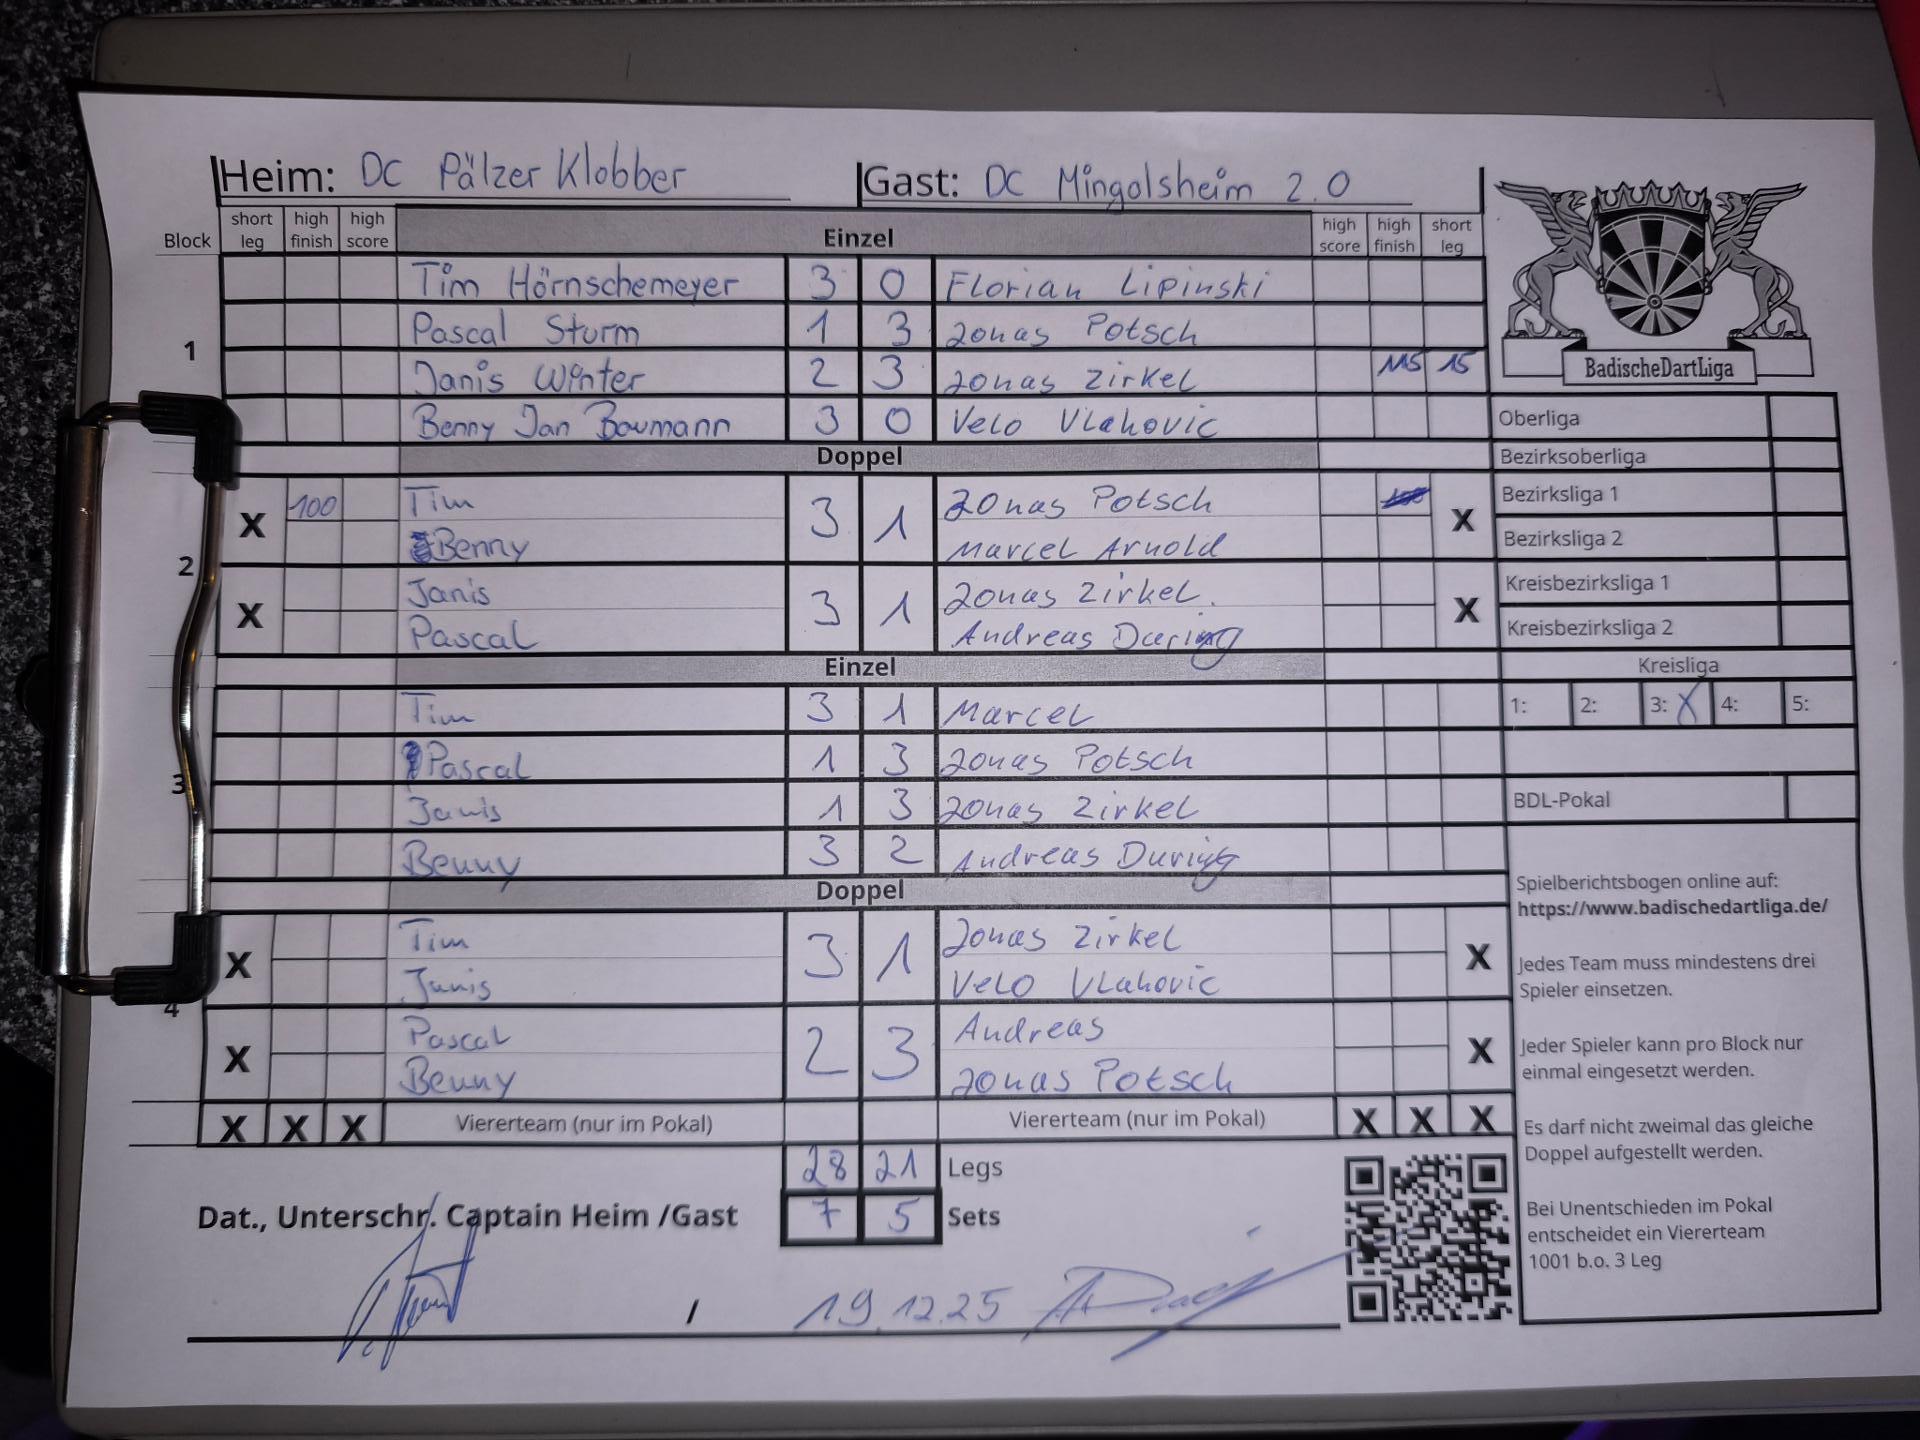 Heim: DC Pälzer Klobber Gast: DC Mingolsheim 2.0
Block short leg high finish high score Einzel high score high finish short leg
1
Tim Hörnschemeyer 3 0 Florian Lipinski
Pascal Sturm 1 3 Jonas Potsch
Janis Winter 2 3 Jonas Zirkel 115 15
Benny Jan Baumann 3 0 Velo Vlahovic
Doppel
2
X 100 Tim 3 1 Jonas Potsch X
Benny Marcel Arnold
X Janis 3 1 Jonas Zirkel X
Pascal Andreas During
Einzel
3
Tim 3 1 Marcel
Pascal 1 3 Jonas Potsch
Janis 1 3 Jonas Zirkel
Benny 3 2 Andreas During
Doppel
4
X Tim 3 1 Jonas Zirkel X
Janis Velo Vlahovic
X Pascal 2 3 Andreas X
Benny Jonas Potsch
X X X Viererteam (nur im Pokal) Viererteam (nur im Pokal) X X X
28 21 Legs
Dat., Unterschr. Captain Heim /Gast 7 5 Sets
/ 19.12.25
BadischeDartLiga
Oberliga
Bezirksoberliga
Bezirksliga 1
Bezirksliga 2
Kreisbezirksliga 1
Kreisbezirksliga 2
Kreisliga
1: 2: 3: X 4: 5:
BDL-Pokal
Spielberichtsbogen online auf:
https://www.badischedartliga.de/
Jedes Team muss mindestens drei
Spieler einsetzen.
Jeder Spieler kann pro Block nur
einmal eingesetzt werden.
Es darf nicht zweimal das gleiche
Doppel aufgestellt werden.
Bei Unentschieden im Pokal
entscheidet ein Viererteam
1001 b.o. 3 Leg